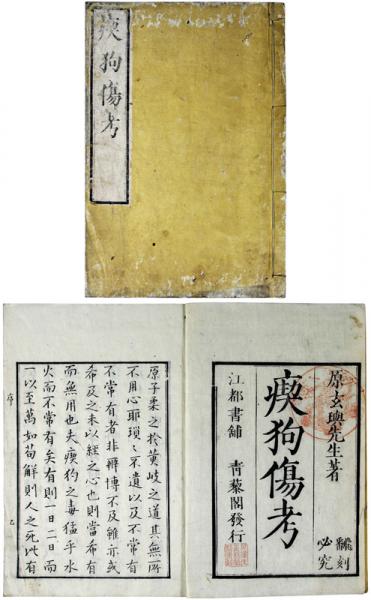 瘈狗傷考
原玄璵先生著
飜刻
必究
瘈狗傷考
江都書舗 青藜閣發行
原子柔之於黄岐之道其無一所
不用心耶瑣〻不遺以及不常有
不常有者非辨博不及雖亦或
希及之未以經之心也則當希有
而無用也夫瘈狗之毒猛乎水
火而不常有矣有則一日二日而
一以至萬如苟解則人之死此有
序